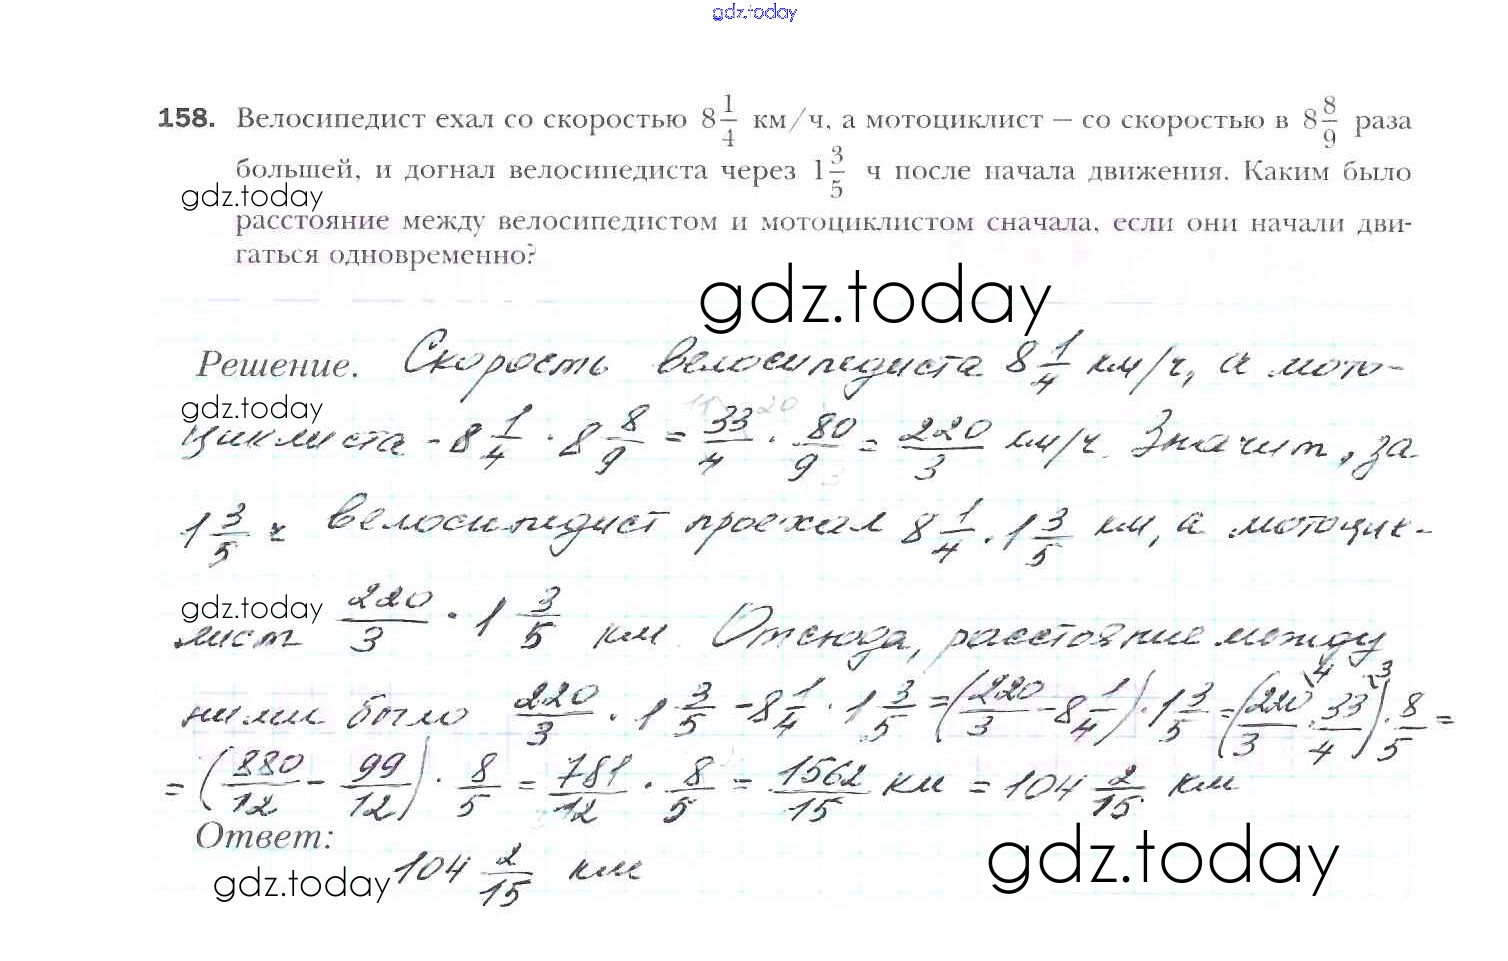 gdz.today
158. Велосипедист ехал со скоростью 8 1/4 км/ч, а мотоциклист – со скоростью в 8 8/9 раза
большей, и догнал велосипедиста через 1 3/5 ч после начала движения. Каким было
gdz.today
расстояние между велосипедистом и мотоциклистом сначала, если они начали дви-
гаться одновременно?
gdz.today
Решение. Скорость велосипедиста 8 1/4 км/ч, а мото-
gdz.today
циклиста - 8 1/4 · 8 8/9 = 33/4 · 80/9 = 220/3 км/ч. Значит, за
1 3/5 ч велосипедист проехал 8 1/4 · 1 3/5 км, а мотоцик-
gdz.today
лист 220/3 · 1 3/5 км. Отсюда, расстояние между
ними было 220/3 · 1 3/5 - 8 1/4 · 1 3/5 = (220/3 - 8 1/4) · 1 3/5 = (220\4/3 · 33\3/4) · 8/5 =
= (880/12 - 99/12) · 8/5 = 781/12 · 8/5 = 1562/15 км = 104 2/15 км
Ответ:
gdz.today
104 2/15 км
gdz.today